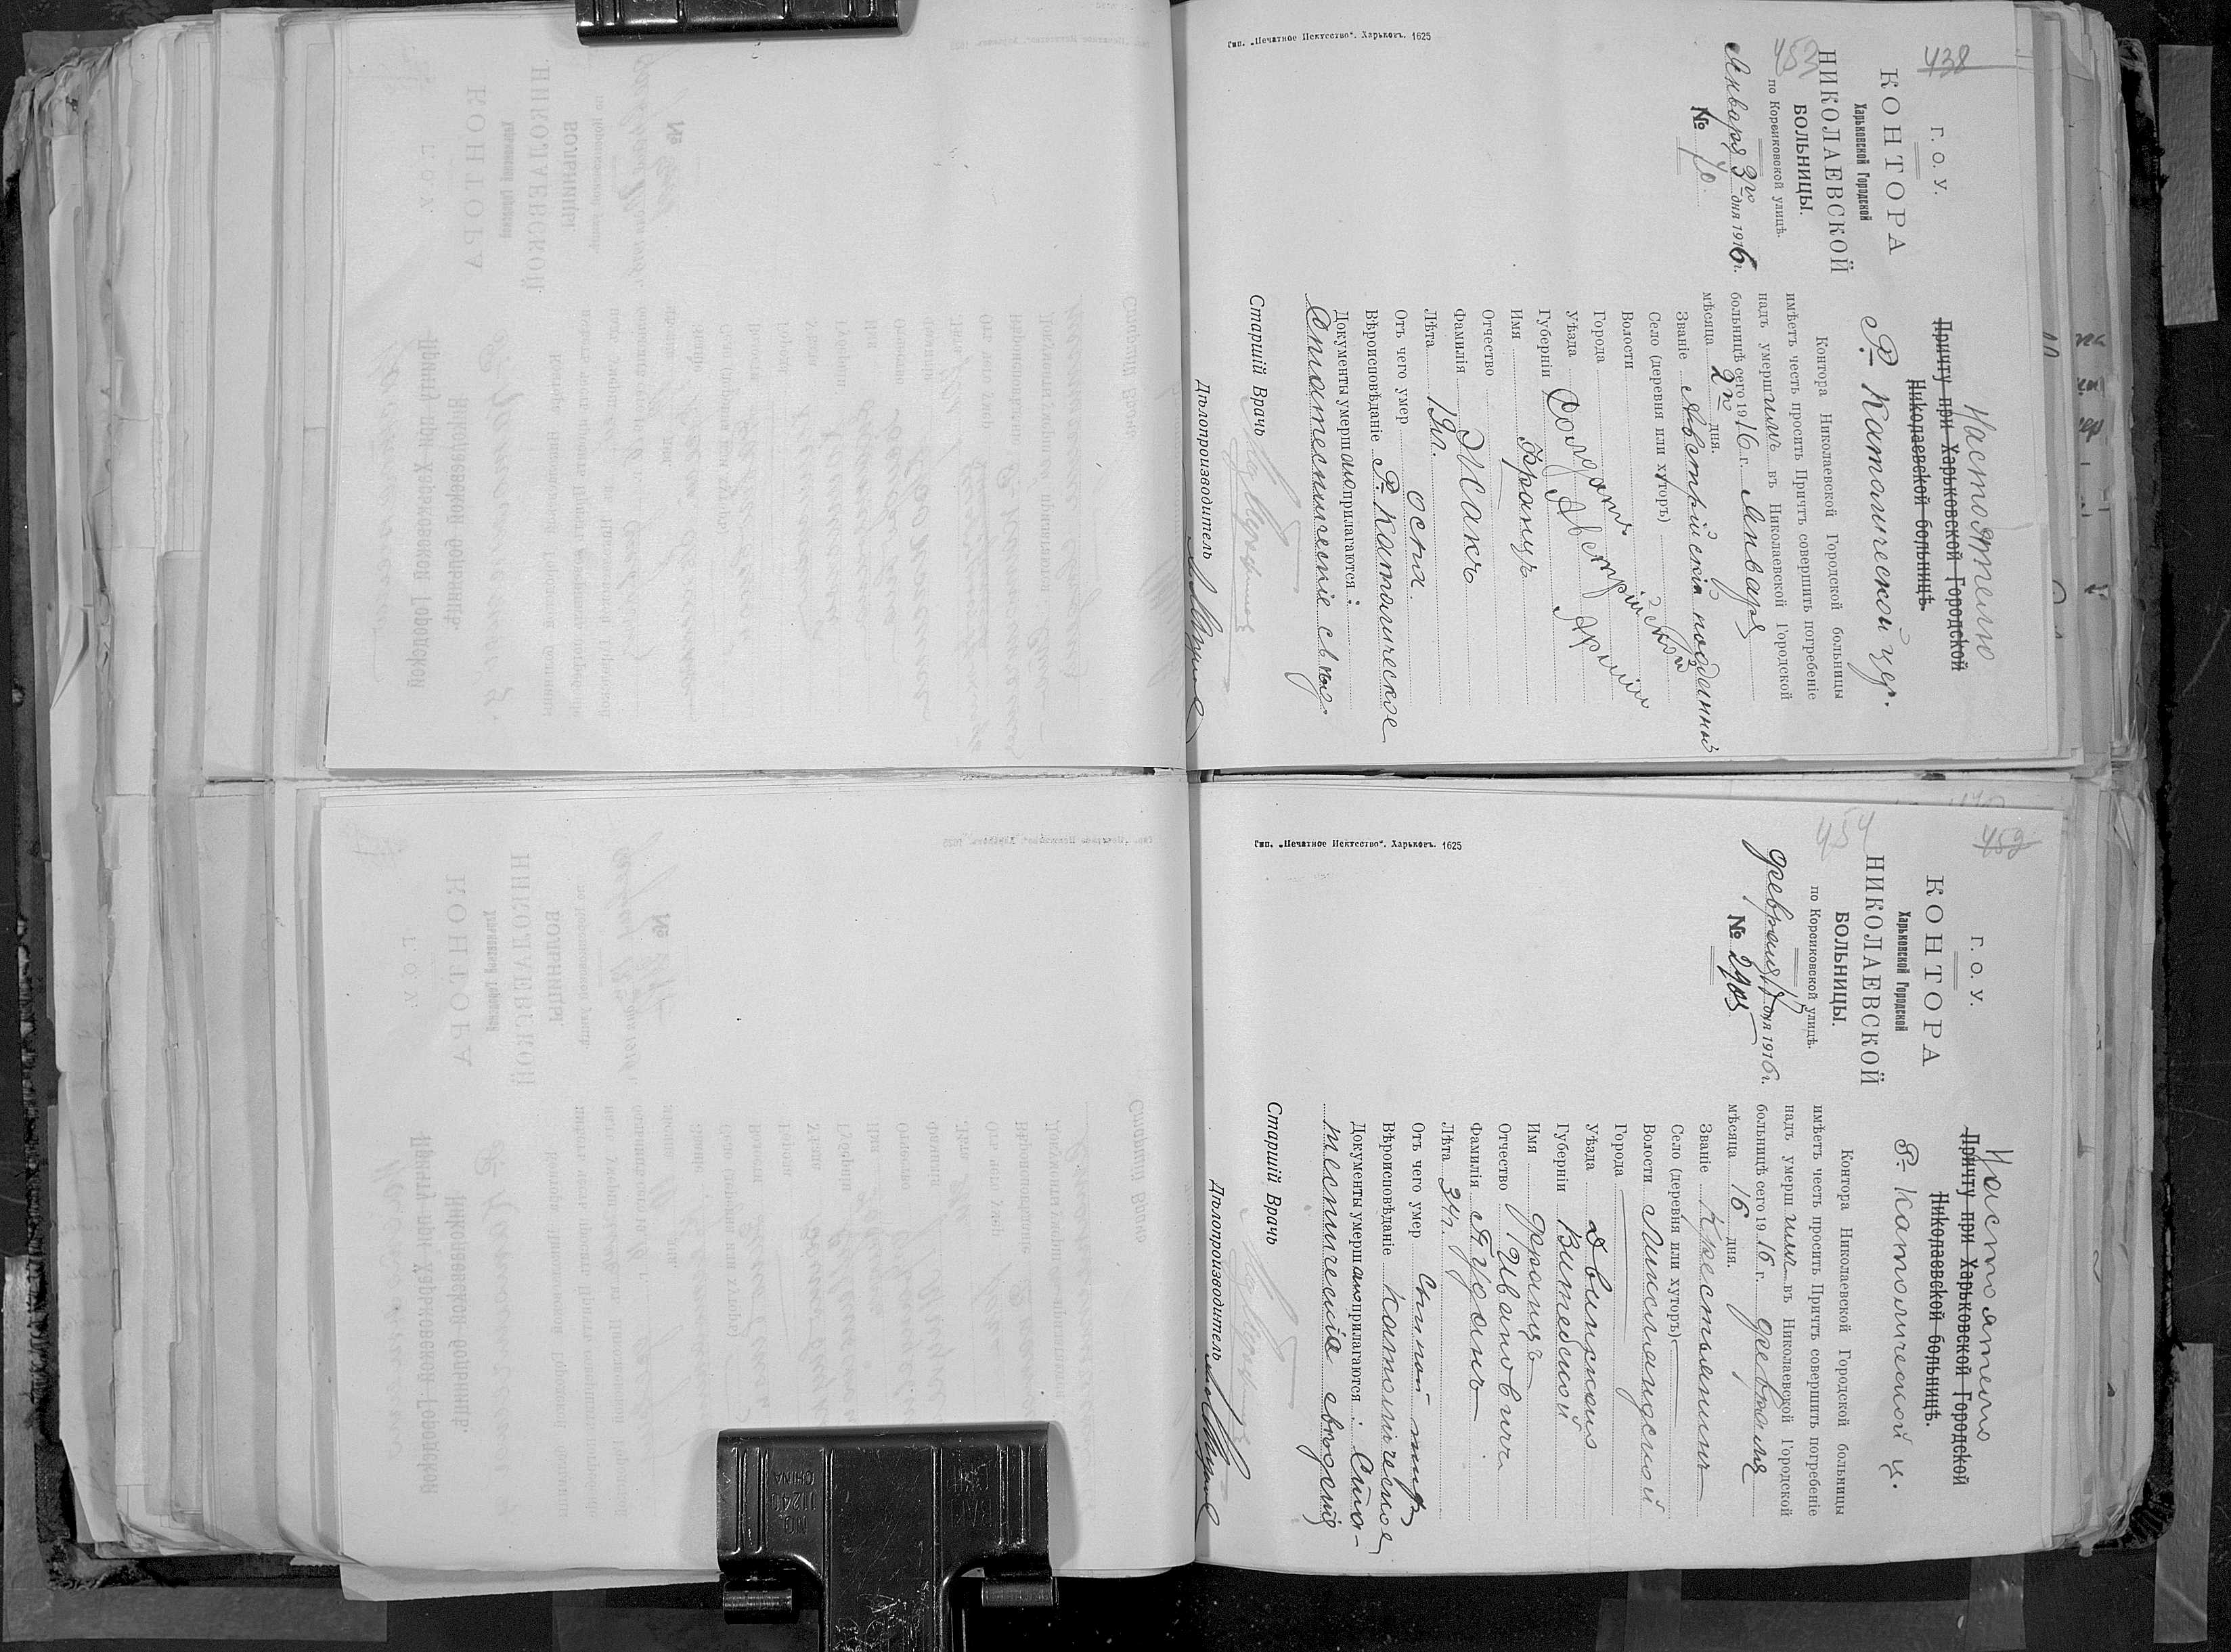 438
Г. О. У.
КОНТОРА
Харьковской Городской
НИКОЛАЕВСКОЙ
БОЛЬНИЦЫ.
по Корсиковской улицѣ.
453
Января 3го дня 1916 г.
№ 70
Настоятелю
Причту при Харьковской Городской
Николаевской больницѣ.
Р. Католической цер.
Контора Николаевской Городской больницы
имѣетъ честь просить Причтъ совершить погребеніе
надъ умершимъ въ Николаевской Городской
больницѣ сего 1916 г. Января
мѣсяца 2го дня.
Званіе Австрійскій подданный
Село (деревня или хуторъ)
Волости
Города
Уѣзда Солдатъ
Губерніи Австрійской Арміи
Имя Францъ
Отчество
Фамилія Жакъ
Лѣта 19л.
Отъ чего умер оспа.
Вѣроисповѣданіе Р. Католическое
Документы умершаго прилагаются:
Статестическіе свѣд.
Старшій Врачъ
Дѣлопроизводитель
Тип. „Печатное Искусство". Харьковъ. 1625
459
Г. О. У.
КОНТОРА
Харьковской Городской
НИКОЛАЕВСКОЙ
БОЛЬНИЦЫ.
по Корсиковской улицѣ.
454
февраля 17 дня 1916 г.
№ 2908
Настоятелю
Причту при Харьковской Городской
Николаевской больницѣ.
Р. Католической ц.
Контора Николаевской Городской больницы
имѣетъ честь просить Причтъ совершить погребеніе
надъ умершимъ въ Николаевской Городской
больницѣ сего 1916 г. февраля
мѣсяца 16 дня.
Званіе Крестьянинъ
Село (деревня или хуторъ)
Волости Ликсняндской
Города
Уѣзда Двинскаго
Губерніи Витебской
Имя францъ
Отчество Ивановичъ
Фамилія
Лѣта 34г.
Отъ чего умер сыпной тиф
Вѣроисповѣданіе Католическое
Документы умершаго прилагаются: Ста-
тестическіе сведенія
Старшій Врачъ
Дѣлопроизводитель
Тип. „Печатное Искусство". Харьковъ. 1625